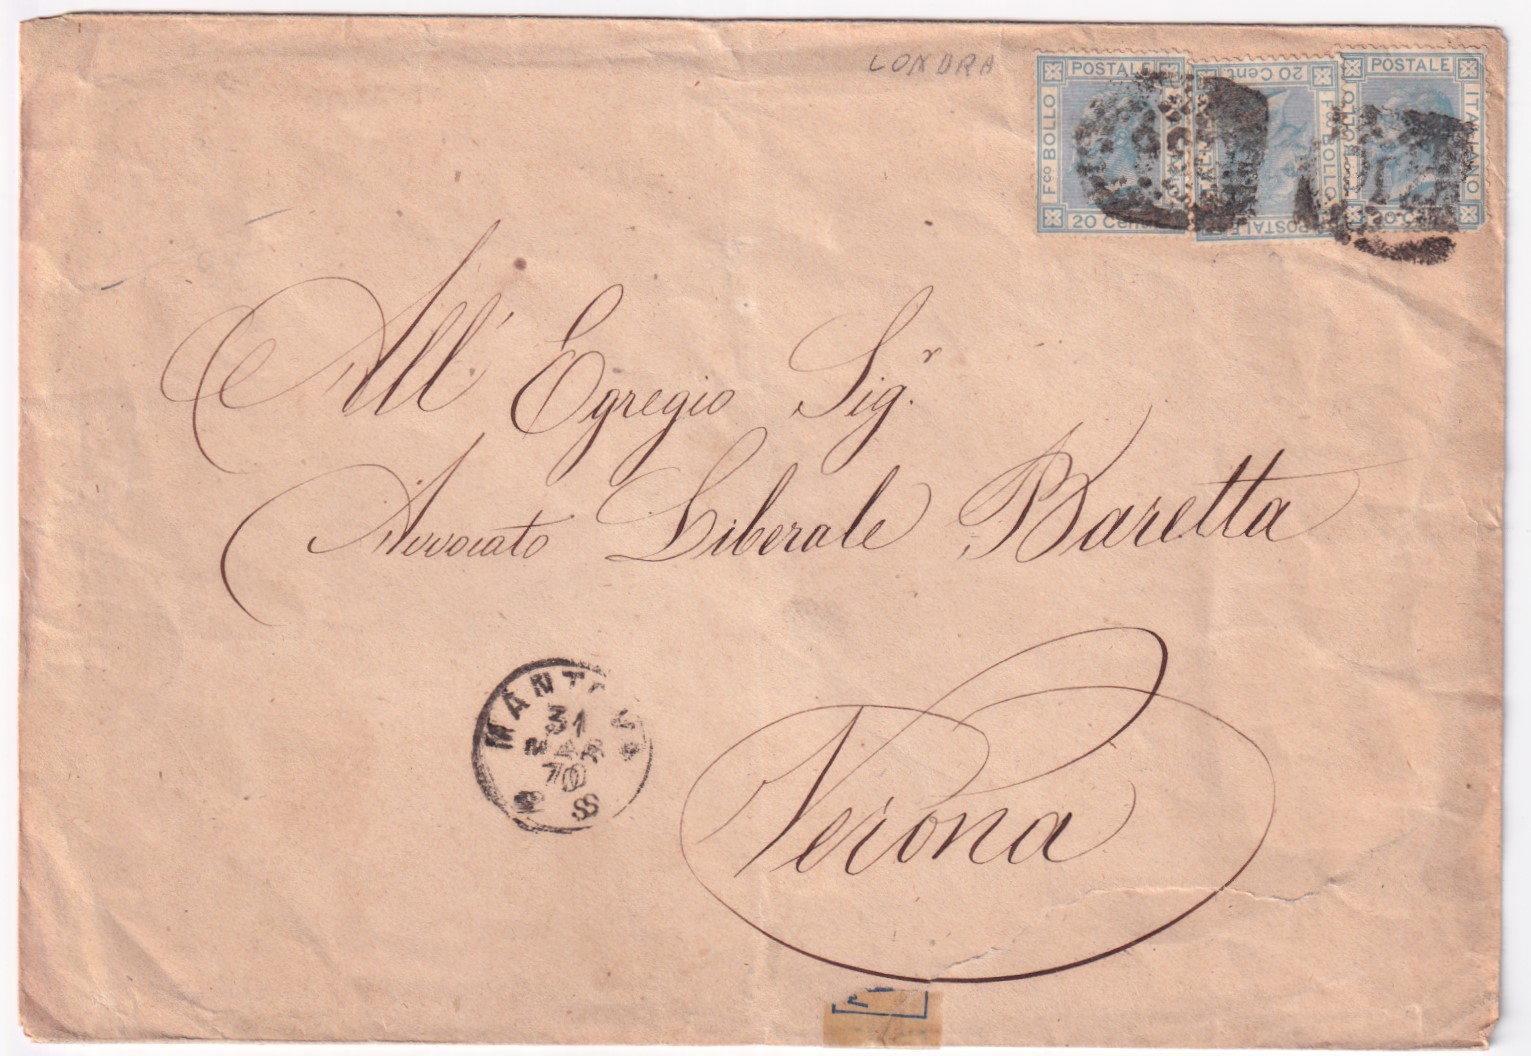 LONDRA
Fco BOLLO POSTALE
20 Cent
20 Cent
Fco BOLLO
POSTALE
BOLLO POSTALE ITALIANO
All' Egregio Sigr.
Avvocato Liberale Baretta
MANTOVA
31
MAR
70
8 S
Verona